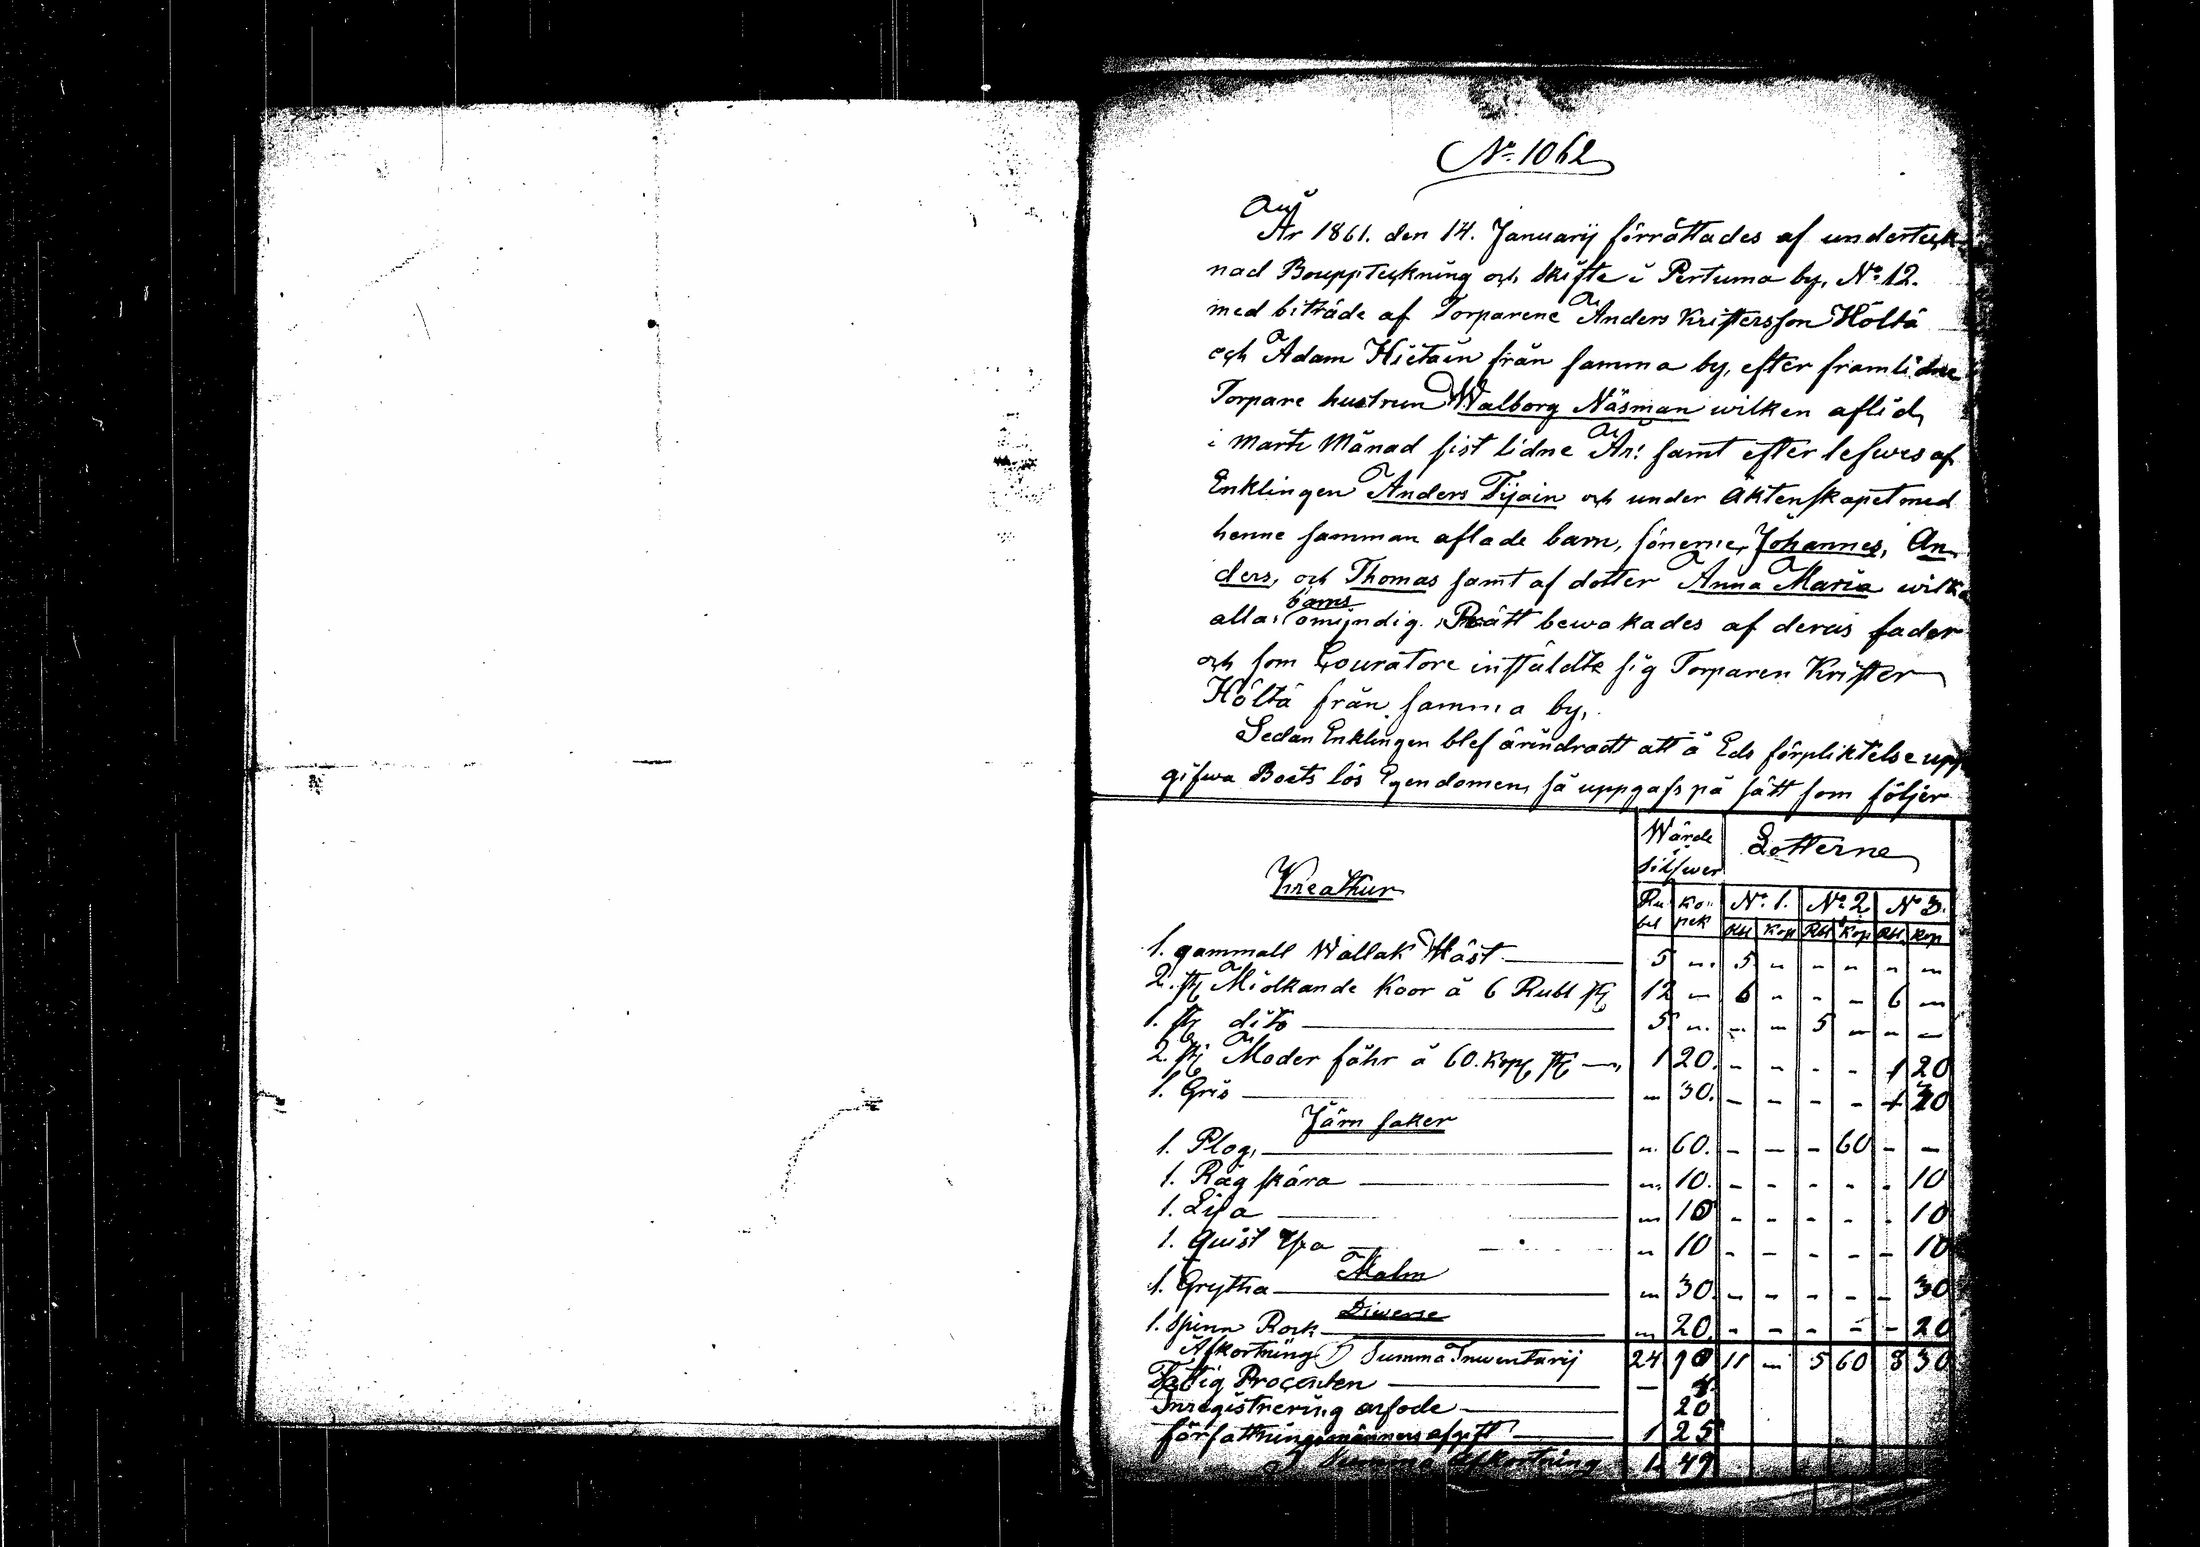 No 1062
År 1861. den 14. Januarij förrättades af underteck-
nad Bouppteckning och Skifte i Pertuma by, No 12.
med biträde af Torparene Anders Kristersson Höltä
och Adam Hietain från samma by, efter framlidne
Torpare hustrun Walborg Näsman wilken aflid,
i Marti Månad sist lidne År: samt efter lefwes af
Enklingen Anders Tijain och under äktenskapet med
henne samman aflade barn, sönerne, Johannes, An-
ders, och Thomas samt af dotter Anna Maria wilka
barns
alla omijndig. Rätt bewakades af deras fader
och som Couratore instäldte sig Torparen Krister
Höltä från samma by,
Sedan Enklingen blef ärindradt att å Eds förpliktelse upp
gifwa Boets lös Egendomen, så uppgafs på sätt som följer
Wärde i Silfwer Lotterne
Kreathur Rubel Kopek No 1. No 2 No 3.
Rbl Kop Rbl Kop Rbl Kop
1. gammall Wallak Häst 5 " 5 " - - - -
2. st Miölkande Koor å 6 Rubl st 12 - 6 - - - 6 -
1. st dito 5 " - - 5 - - -
2. st Moder fåhr å 60. Kop st 1 20. - - - - 1 20
1. Gris - 30. - - - - - 30
Järn saker
1. Plog, " 60. - - - 60 - -
1. Råg skära " 10. - - - - - 10
1. Lija " 10 - - - - - 10
1. Quist Yxa " 10 - - - - - 10
Malm
1. Grytha " 30. - - - - - 30
Diverse
1. Spinn Rock " 20 - - - - - 20
Afkortning Summa Inwentarij 24 90 11 - 5 60 8 30
Fattig Procenten - 4
Inregistrering arfode 20
författningsmänners afgift 1 25
Summa Afkortning 1. 49